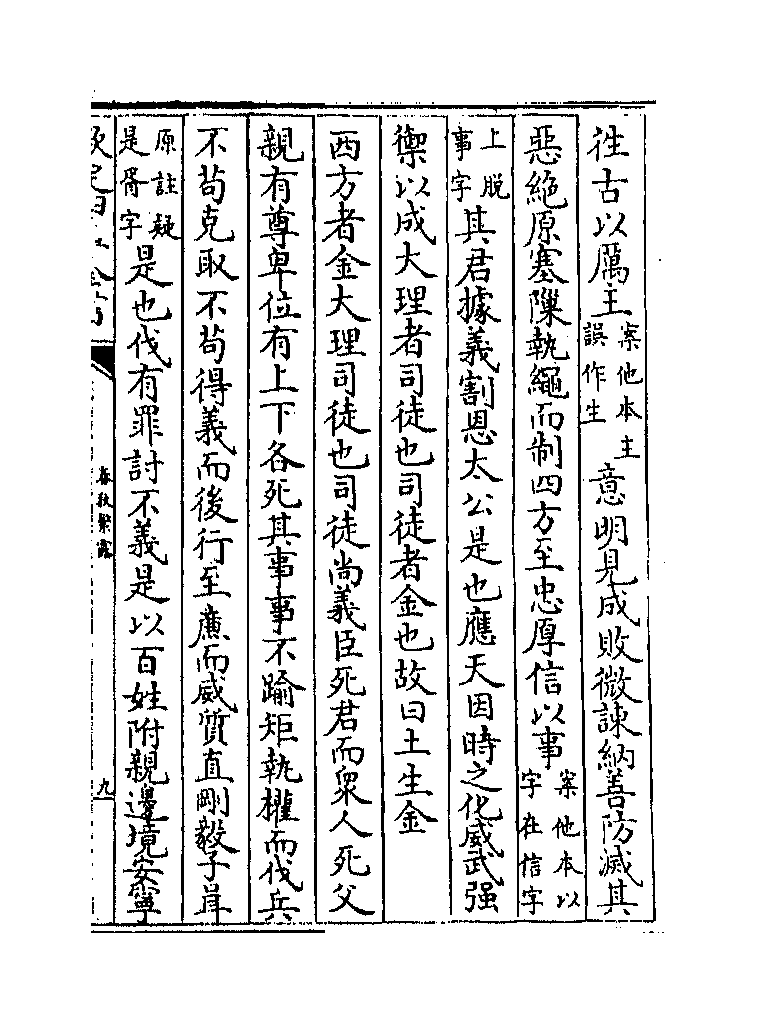 徃古以厲主案他本主誤作生意明見成敗微諫納善防滅其
惡絶原塞隟執繩而制四方至忠厚信以事案他本以字在信字
上脱事字其君據義割恩太公是也應天因時之化威武强
禦以成大理者司徒也司徒者金也故曰土生金
西方者金大理司徒也司徒尚義臣死君而衆人死父
親有尊卑位有上下各死其事事不踰矩執權而伐兵
不苟克取不苟得義而後行至亷而威質直剛毅子
原註疑是胥字是也伐有罪討不義是以百姓附親邊境安寧
欽定四庫全書
春秋繁露
九